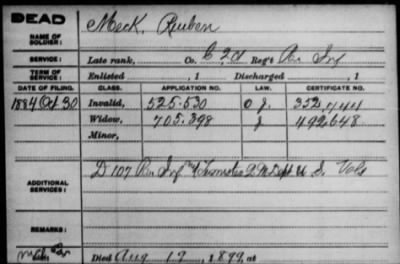 DEAD
NAME OF SOLDIER: Meck, Reuben
SERVICE: Late rank, Co. Reg't Pa Inf
TERM OF SERVICE: Enlisted , 1 Discharged , 1
DATE OF FILING. CLASS. APPLICATION NO. LAW. CERTIFICATE NO.
1884 Oct 30 Invalid, 525.530 J. 352,744
Widow, 705.398 J 492,648
Minor,
ADDITIONAL SERVICES: D 107 Pa Inf Teamster Q M Dept U. S. Vols
REMARKS:
Died Aug 17, 1899, at